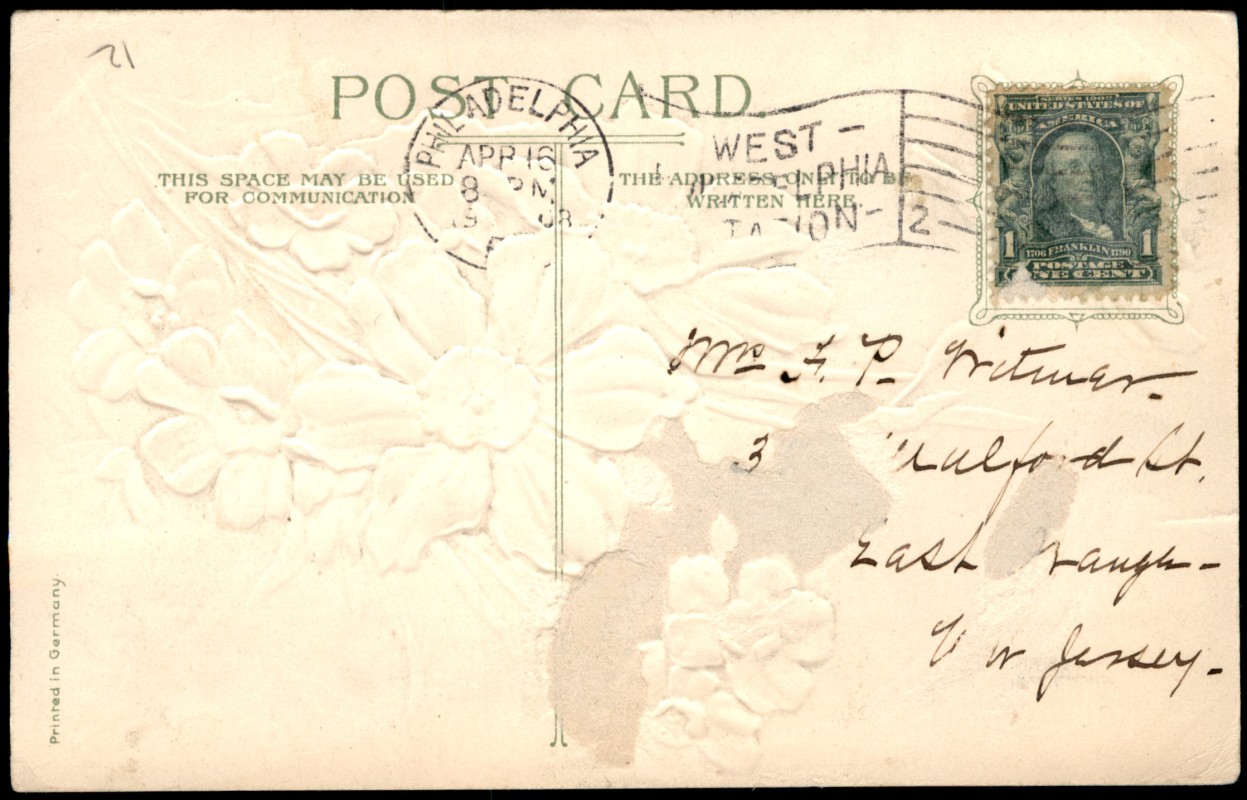 21
POST CARD
PHILADELPHIA
APR 16
8 PM
1908
WEST
PHILADELPHIA
STATION
2
THIS SPACE MAY BE USED
FOR COMMUNICATION
THE ADDRESS ONLY TO BE
WRITTEN HERE.
SERIES 1902
UNITED STATES OF
AMERICA
1 1
1706 FRANKLIN 1790
POSTAGE
ONE CENT
Mrs F. P. Witmar.
3 ulford St.
East range
N w Jersey.
Printed in Germany.